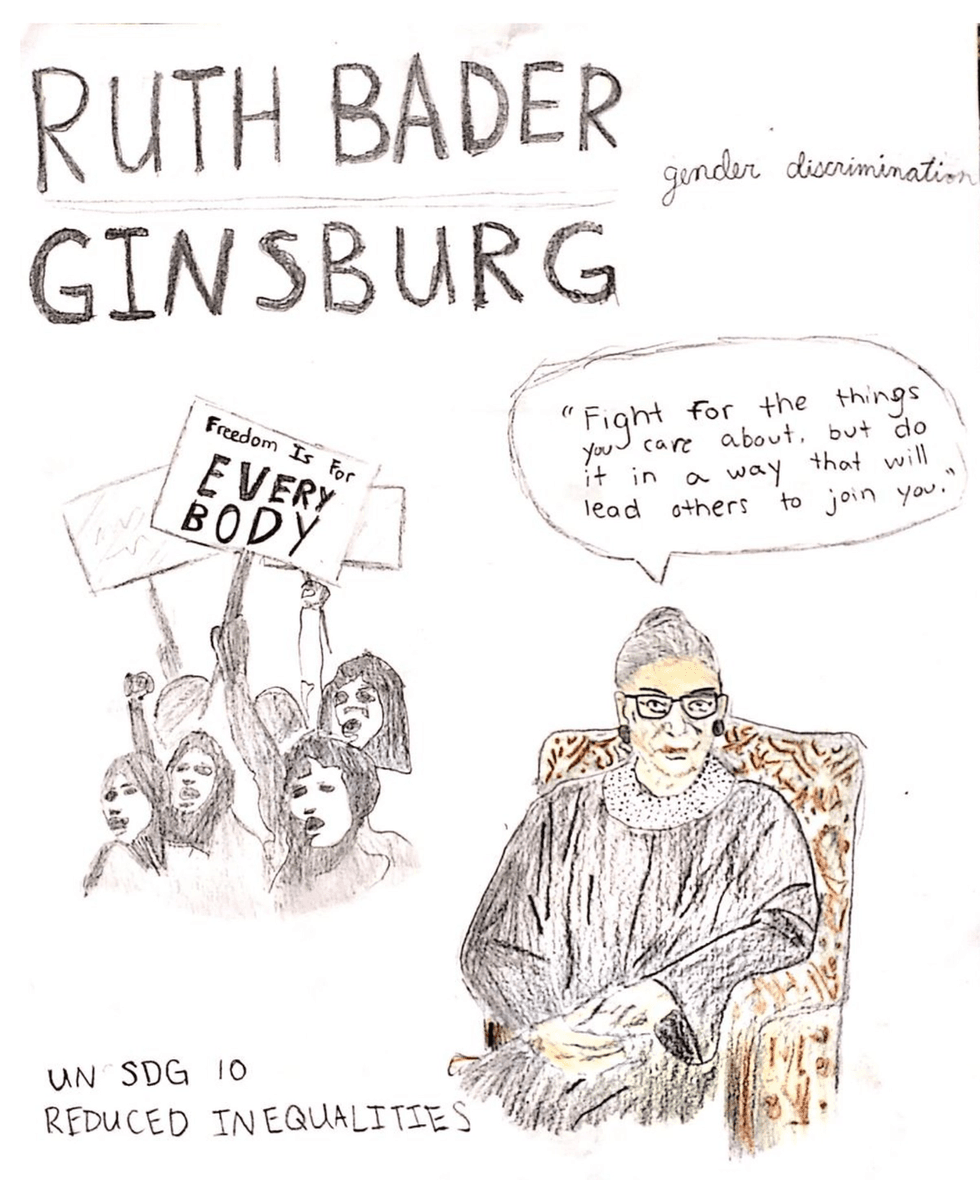 RUTH BADER
GINSBURG
gender discrimination
Freedom Is For
EVERY
BODY
"Fight for the things
you care about, but do
it in a way that will
lead others to join you."
UN SDG 10
REDUCED INEQUALITIES